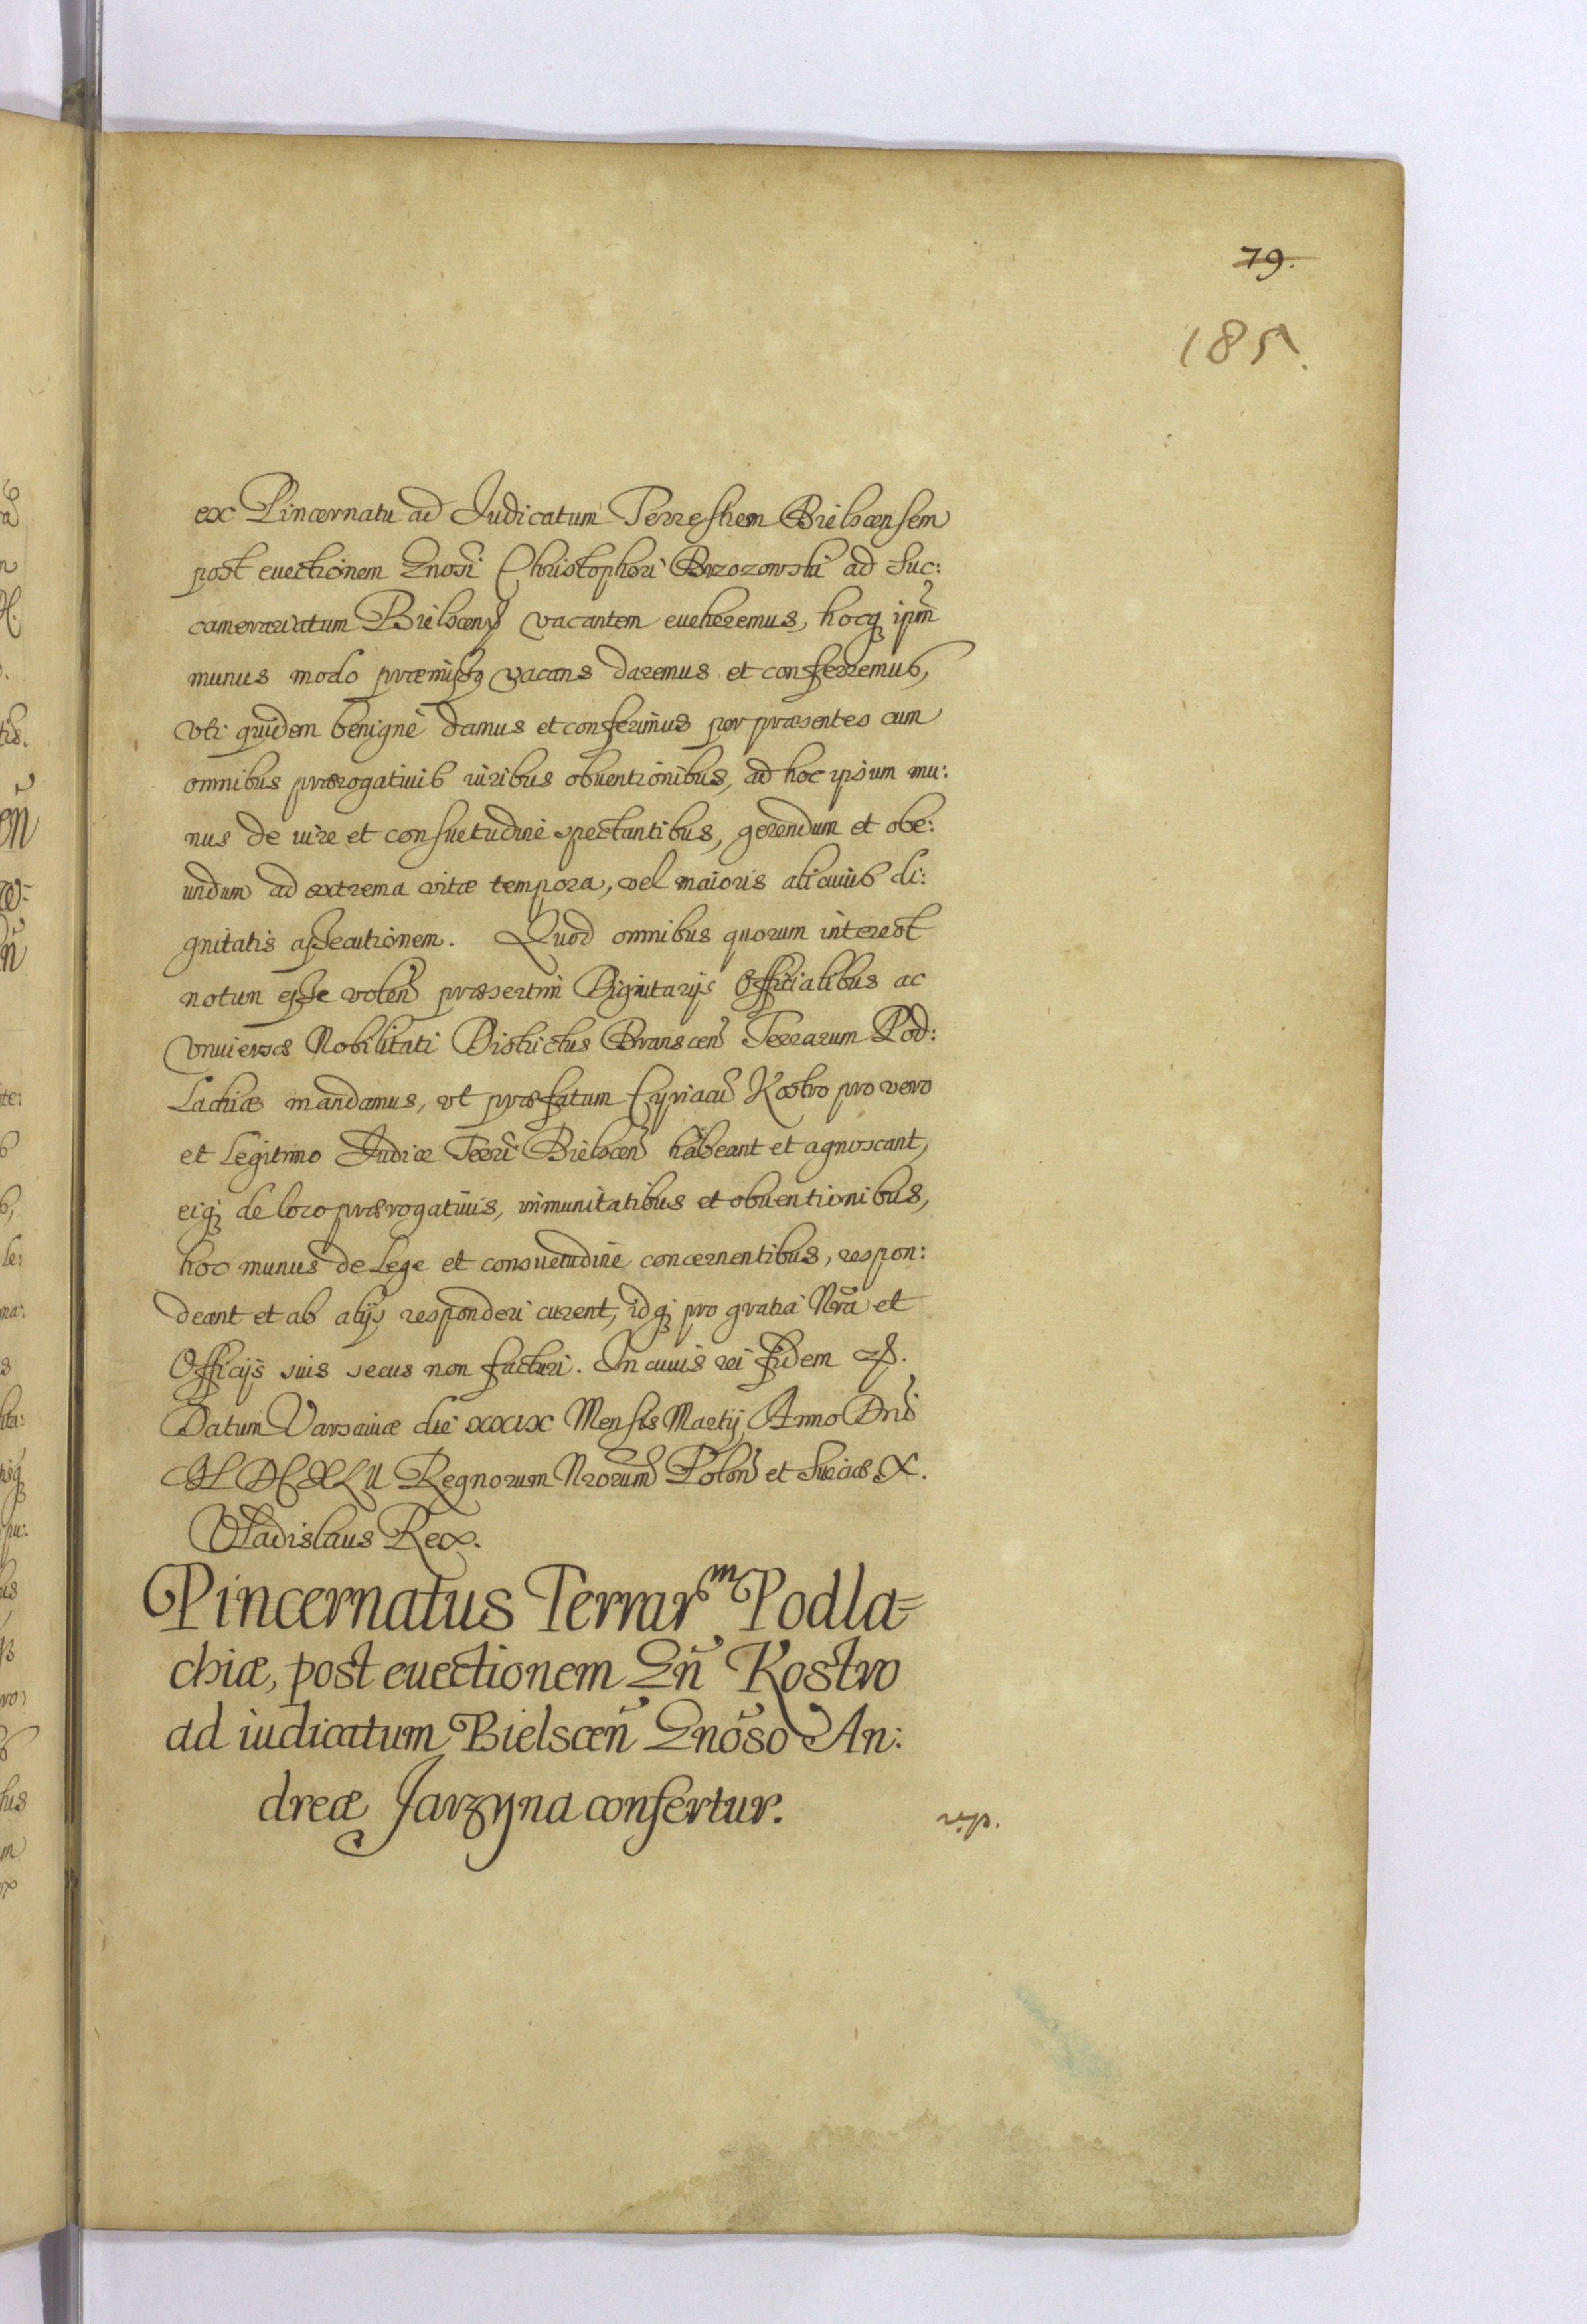 79.
185.
ex Pincernatu ad Judicatum Terrestrem Bielscensem
post euectionem Gnosi Christophori Brzozowski ad Suc:
camerariatum Bielscens vacantem eueheremus, hocq ipm̃
munus modo præmisso vacans daremus et conferremus,
vti quidem benigne damus et conferimus per præsentes cum
omnibus prærogatiuis iuribus obuentionibus, ad hoc ipsum mu:
nus de iure et consuetudine spectantibus, gerendum et obe:
undum ad extrema vitæ tempora, vel maioris alicuius di:
gnitatis assecutionem. Quod omnibus quorum interest
notum esse volen̄ præsertim Dignitarijs Officialibus ac
vniuersæ Nobilitati Districtus Branscen̄ Terrarum Pod:
lachiæ mandamus, vt præfatum Cyriacū Kostro pro vero
et legitimo Judice Terrī Bielscen̄ habeant et agnoscant,
eiq; de loco prærogatiuis, immunitatibus et obuentionibus,
hoc munus de lege et consuetudine concernentibus, respon:
deant et ab alijs responderi curent, idq; pro gratia Nrã et
Officijs suis secus non facturi. In cuius rei fidem
Datum Varsauiæ die XXIX Mensis Martij Anno Dnī
M DC XLII Regnorum Nrorum Polon̄ et Sueciæ X.
Vladislaus Rex.
Pincernatus Terrarm Podla=
chiæ, post euectionem Gn̄ Kostro
ad iudicatum Bielscen̄ Gnõso An:
dreæ Jarzyna confertur.